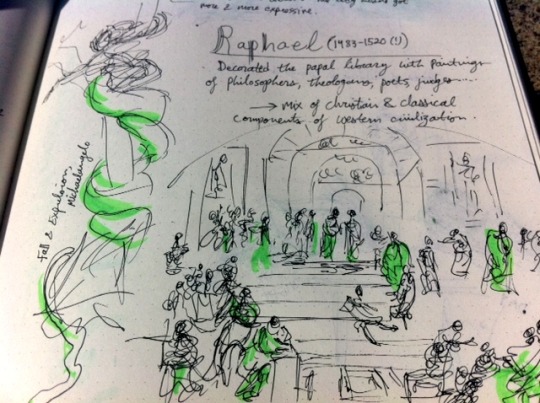 more & more expressive.
Raphael (1483-1520 (!)
Decorated the papal library with paintings
of philosophers, theologians, poets, judges......
→ Mix of christian & classical
components of western civilization.
Fall & Expulsion,
Michaelangelo